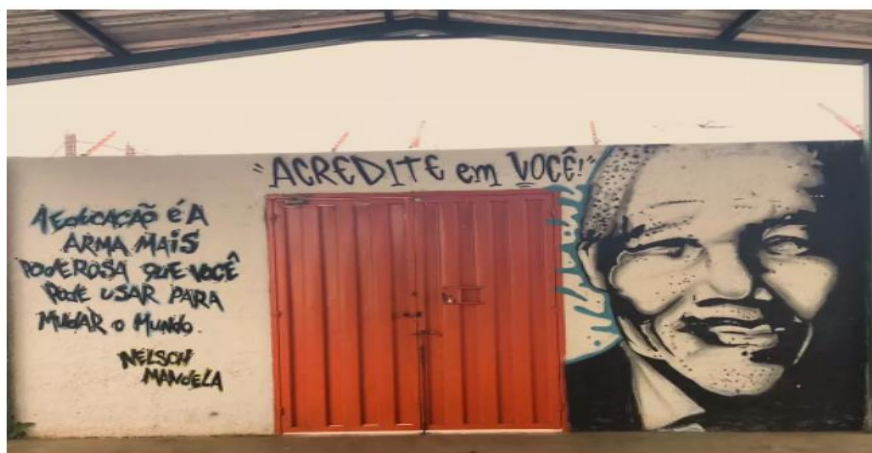 "ACREDITE em VOCÊ!"
A EDUCAÇÃO É A
ARMA MAIS
PODEROSA QUE VOCÊ
PODE USAR PARA
MUDAR o MUNDO.
NELSON
MANDELA